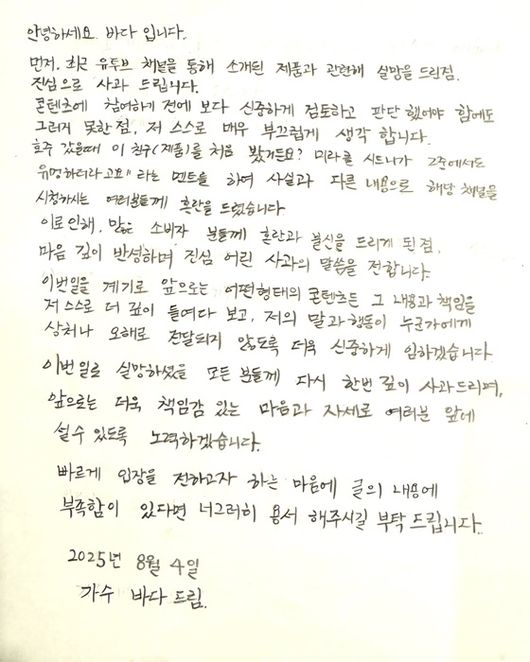 안녕하세요 바다 입니다.
먼저, 최근 유튜브 채널을 통해 소개된 제품과 관련해 실망을 드린점.
진심으로 사과 드립니다.
콘텐츠에 참여하기 전에 보다 신중하게 검토하고 판단 했어야 함에도
그러지 못한점, 저 스스로 매우 부끄럽게 생각 합니다.
호주 갔을때 이 친구(제품)를 처음 봤거든요? 미라클 시드니가 그중에서도
유명하더라고요" 라는 멘트를 하여 사실과 다른 내용으로 해당 채널을
시청하시는 여러분들께 혼란을 드렸습니다
이로 인해, 많은 소비자 분들께 혼란과 불신을 드리게 된점,
마음 깊이 반성하며 진심 어린 사과의 말씀을 전합니다.
이번일을 계기로 앞으로는 어떤형태의 콘텐츠든 그 내용과 책임을
저 스스로 더 깊이 들여다 보고, 저의 말과 행동이 누군가에게
상처나 오해로 전달되지 않도록 더욱 신중하게 임하겠습니다
이번 일로 실망하셨을 모든 분들께 다시 한번 깊이 사과드리며,
앞으로는 더욱 책임감 있는 마음과 자세로 여러분 앞에
설수 있도록 노력하겠습니다.
빠르게 입장을 전하고자 하는 마음에 글의 내용에
부족함이 있다면 너그러히 용서 해주시길 부탁 드립니다.
2025년 8월 4일
가수 바다 드림.